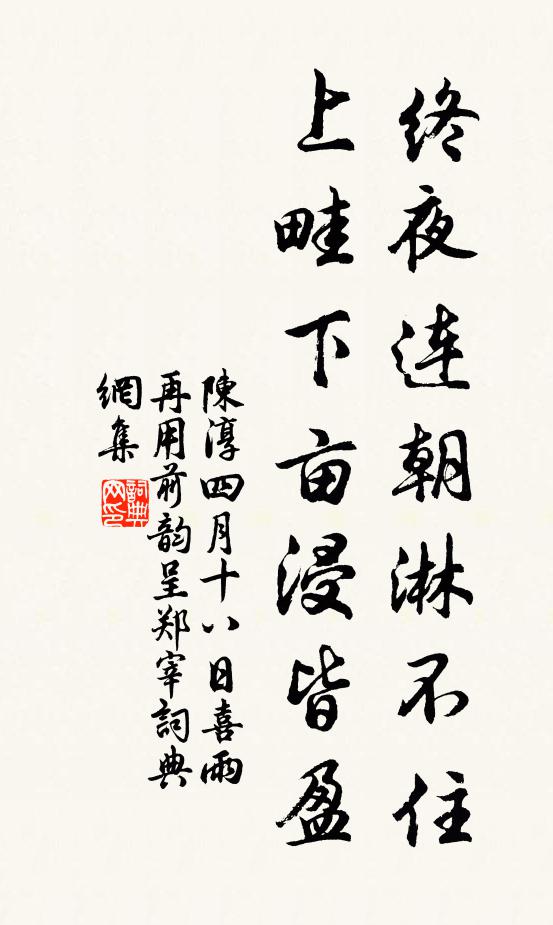 终夜连朝淋不住
上畦下亩浸皆盈
陳淳四月十八日喜雨
再用前韵呈郑宰詞典
網集
詞典